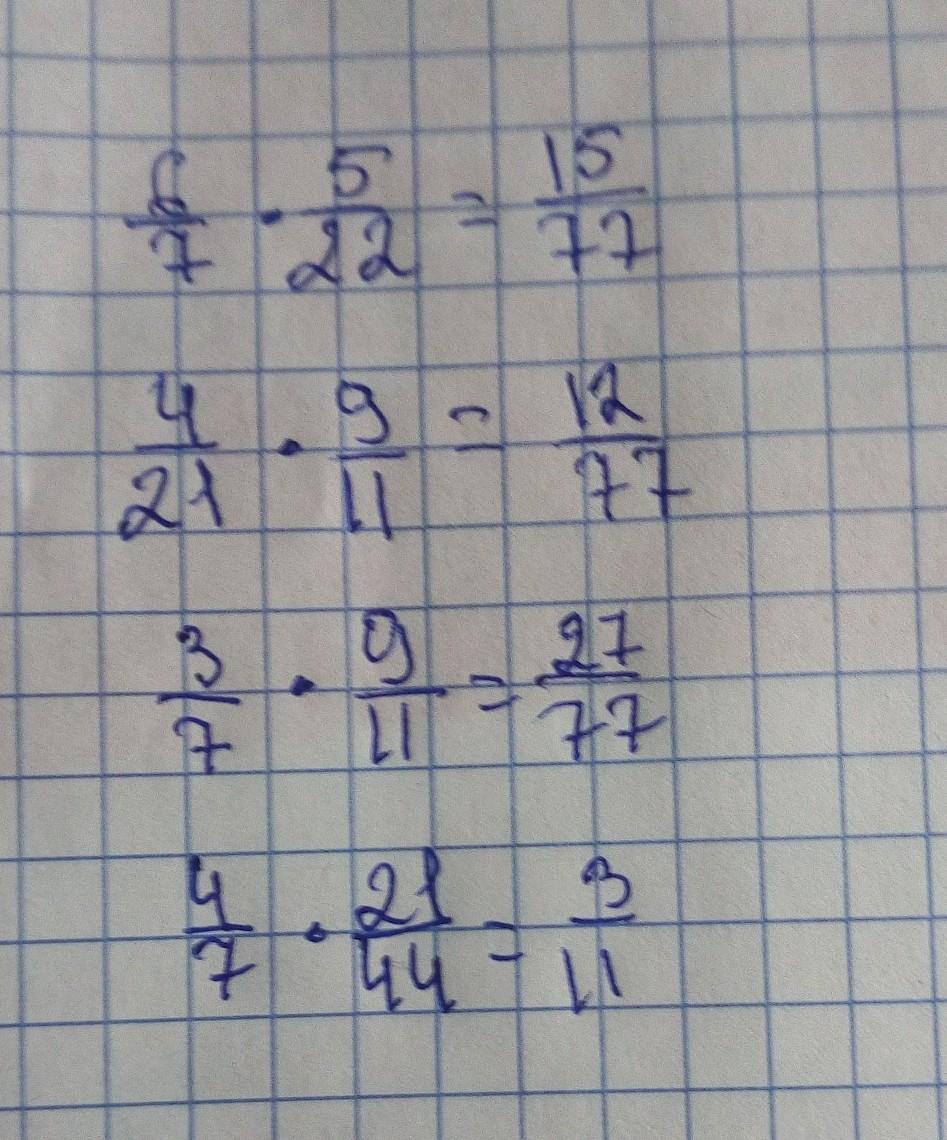 6/7 · 5/22 = 15/77
4/21 · 9/11 = 12/77
3/7 · 9/11 = 27/77
4/7 · 21/44 = 3/11